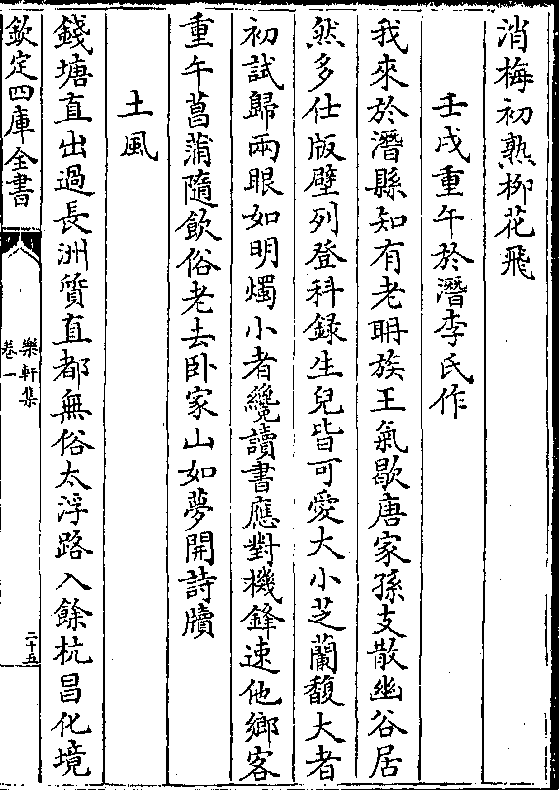 消梅初熟栁花飛
壬戌重午於潛李氏作
我來於潛縣知有老耼族王氣歇唐家孫支散幽谷居
然多仕版壁列登科録生兒皆可愛大小芝蘭馥大者
初試歸兩眼如明燭小者纔讀書應對機鋒速他鄉客
重午菖蒲隨飲俗老去卧家山如夢開詩牘
土風
錢塘直出過長洲質直都無俗太浮路入餘杭昌化境
欽定四庫全書
樂軒集
卷一
二十五